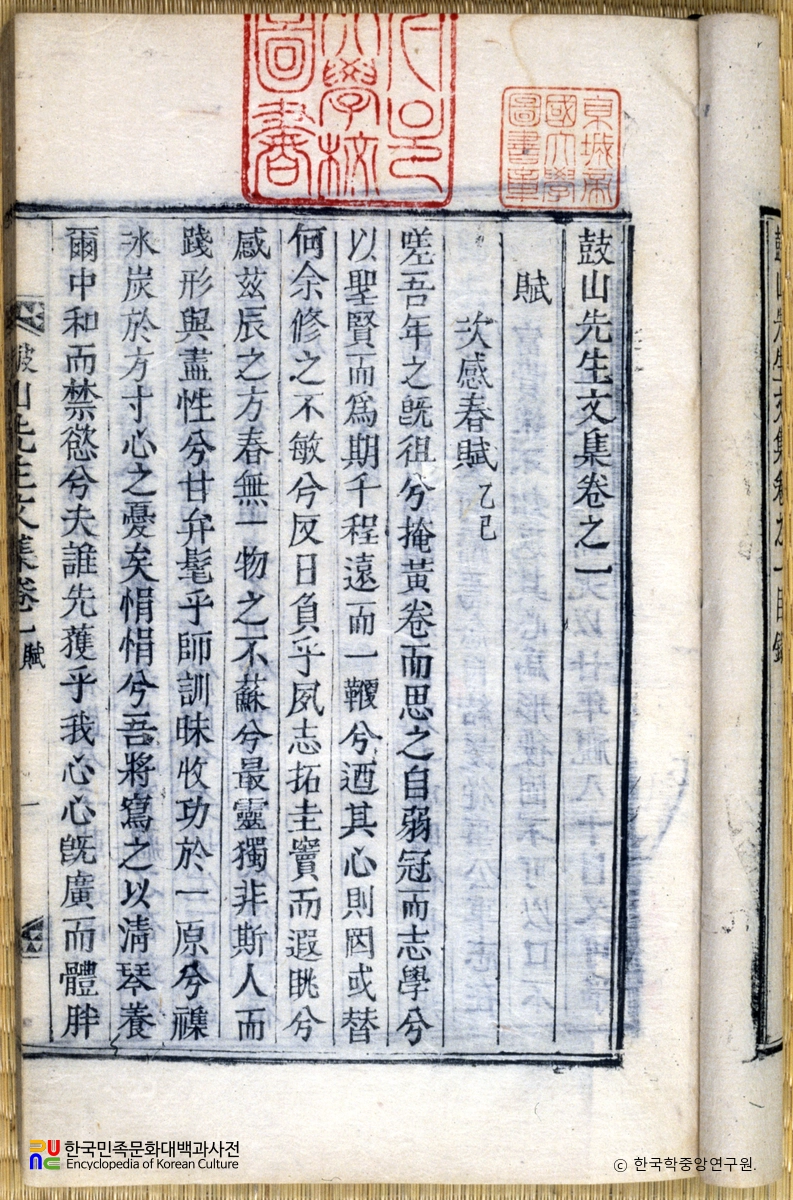 鼓山先生文集卷之一
賦
次感春賦 乙巳
嗟吾年之旣徂兮掩黃卷而思之自弱冠而志學兮
以聖賢而爲期千程遠而一鞭兮迺其心則罔或替
何余修之不敏兮反日負乎夙志拓圭竇而遐眺兮
感茲辰之方春無一物之不蘇兮最靈獨非斯人而
踐形與盡性兮甘弁髦乎師訓昧收功於一原兮襍
冰炭於方寸心之憂矣悁悁兮吾將寫之以淸琴養
爾中和而禁慾兮夫誰先獲乎我心心旣廣而體胖
鼓山先生文集卷一 賦 一
京城帝
國大學
圖書章
大學校
圖書
鼓山先生文集卷之一目錄
한국민족문화대백과사전
Encyclopedia of Korean Culture
ⓒ 한국학중앙연구원.